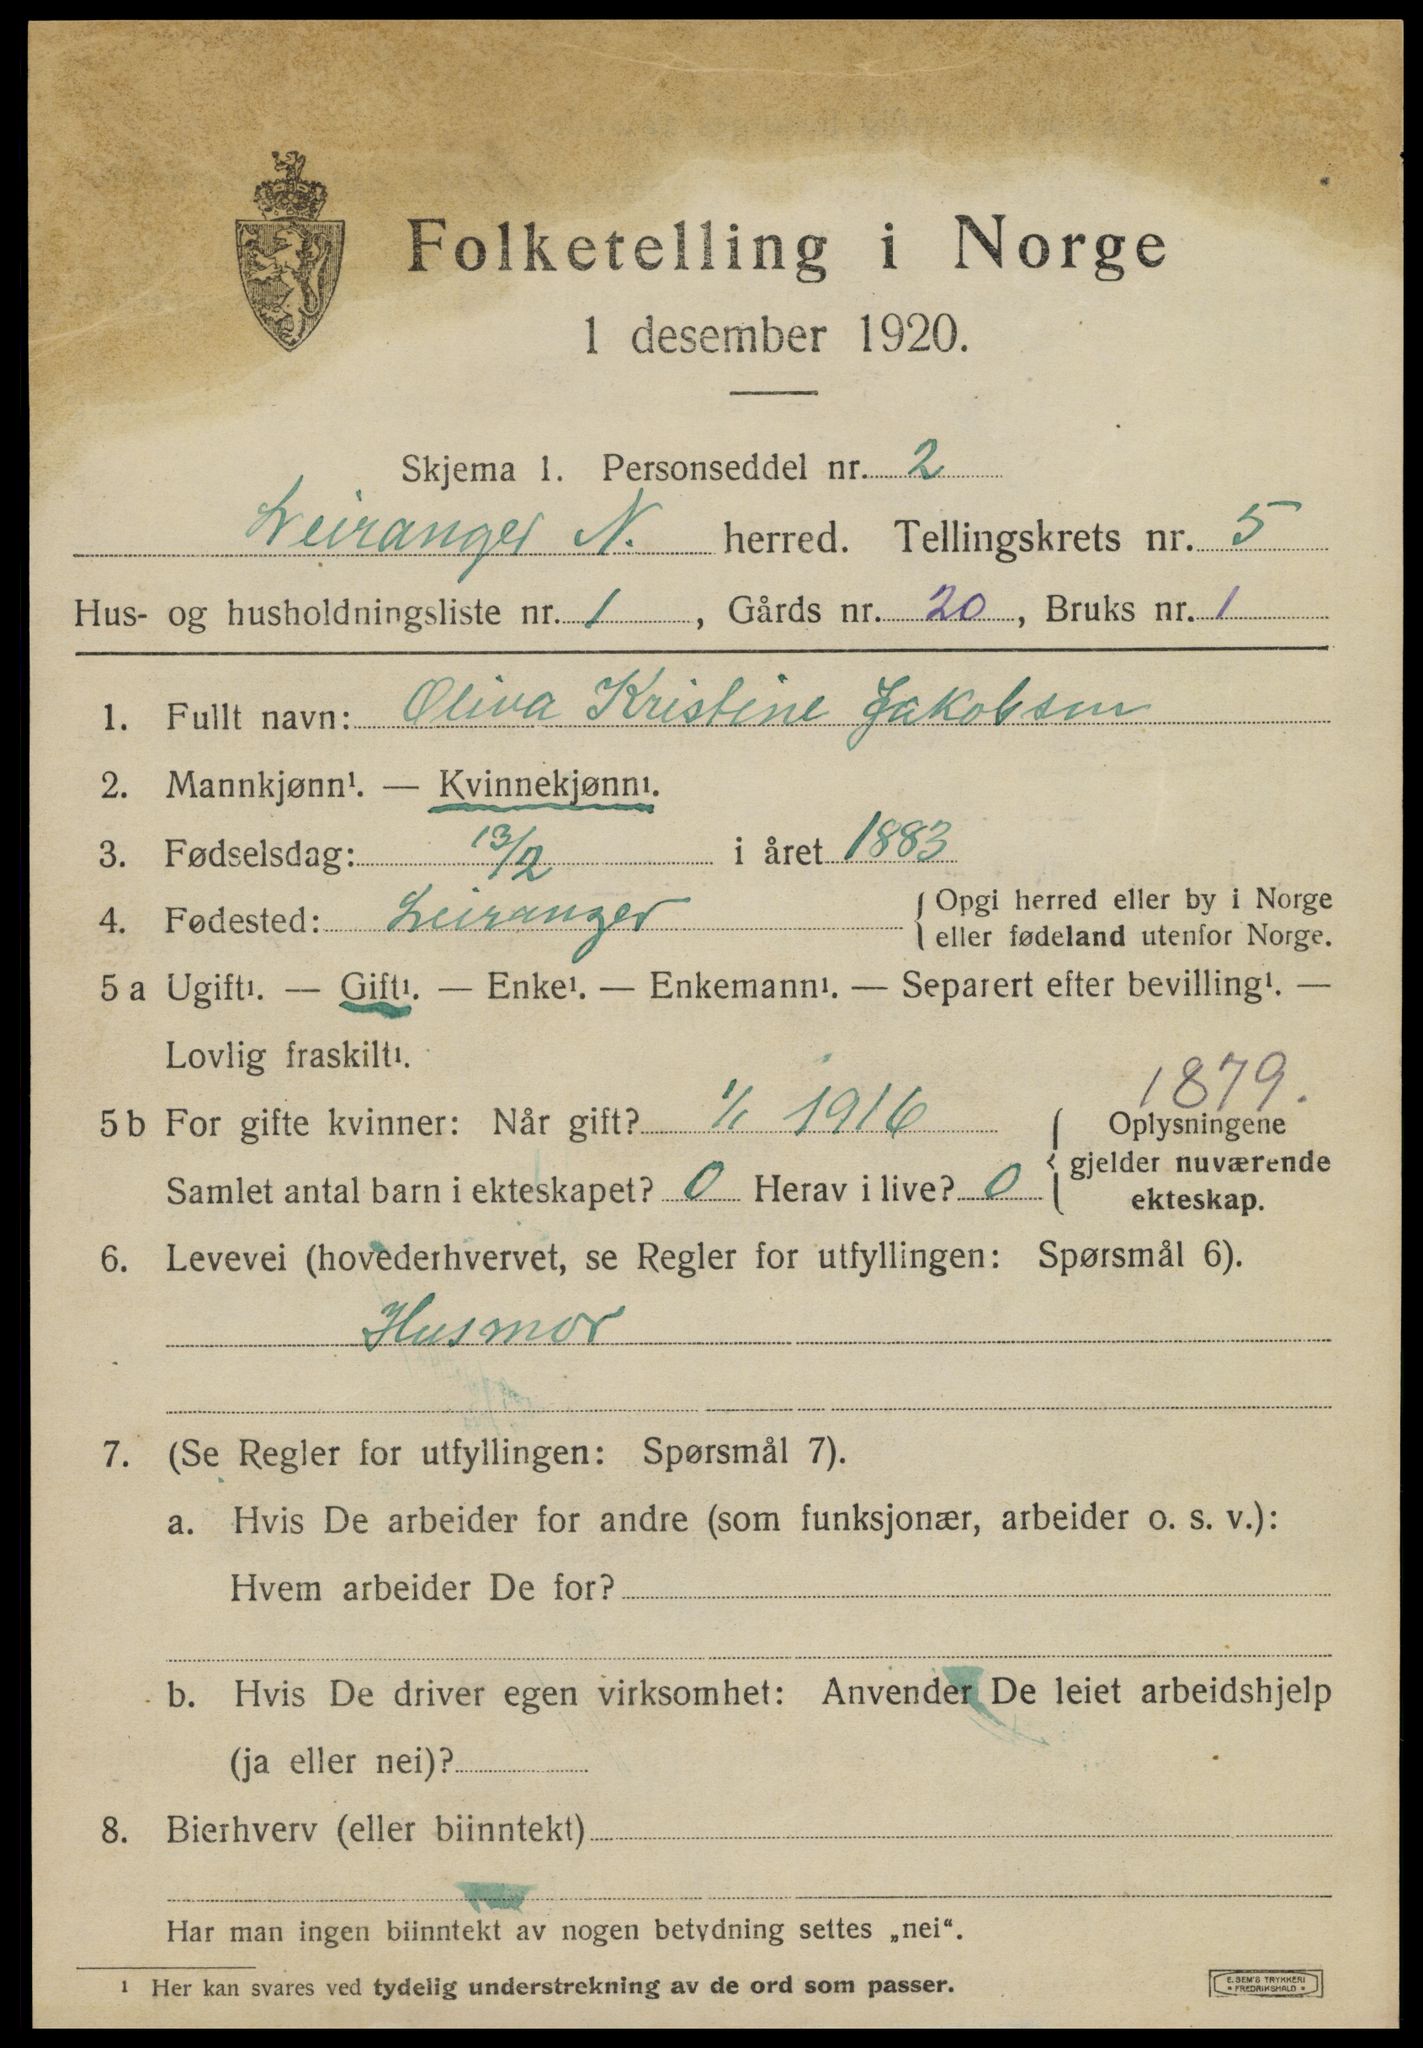 Folketelling i Norge
1 desember 1920.
Skjema 1. Personseddel nr. 2
Leiranger N. herred. Tellingskrets nr. 5
Hus- og husholdningsliste nr. 1, Gårds nr. 20, Bruks nr. 1
1. Fullt navn: Oliva Kristine Jakobsen
2. Mannkjønn¹. — Kvinnekjønn¹.
3. Fødselsdag: 13/2 i året 1883
4. Fødested: Leiranger { Opgi herred eller by i Norge
eller fødeland utenfor Norge.
5 a Ugift¹. — Gift¹. — Enke¹. — Enkemann¹. — Separert efter bevilling¹. —
Lovlig fraskilt¹.
1879.
5 b For gifte kvinner: Når gift? 1/1 1916 { Oplysningene
gjelder nuværende
ekteskap.
Samlet antal barn i ekteskapet? 0 Herav i live? 0
6. Levevei (hovederhvervet, se Regler for utfyllingen: Spørsmål 6).
Husmor
7. (Se Regler for utfyllingen: Spørsmål 7).
a. Hvis De arbeider for andre (som funksjonær, arbeider o. s. v.):
Hvem arbeider De for?
b. Hvis De driver egen virksomhet: Anvender De leiet arbeidshjelp
(ja eller nei)?
8. Bierhverv (eller biinntekt)
Har man ingen biinntekt av nogen betydning settes „nei“.
¹ Her kan svares ved tydelig understrekning av de ord som passer.
E. SEM'S TRYKKERI
* FREDRIKSHALD *